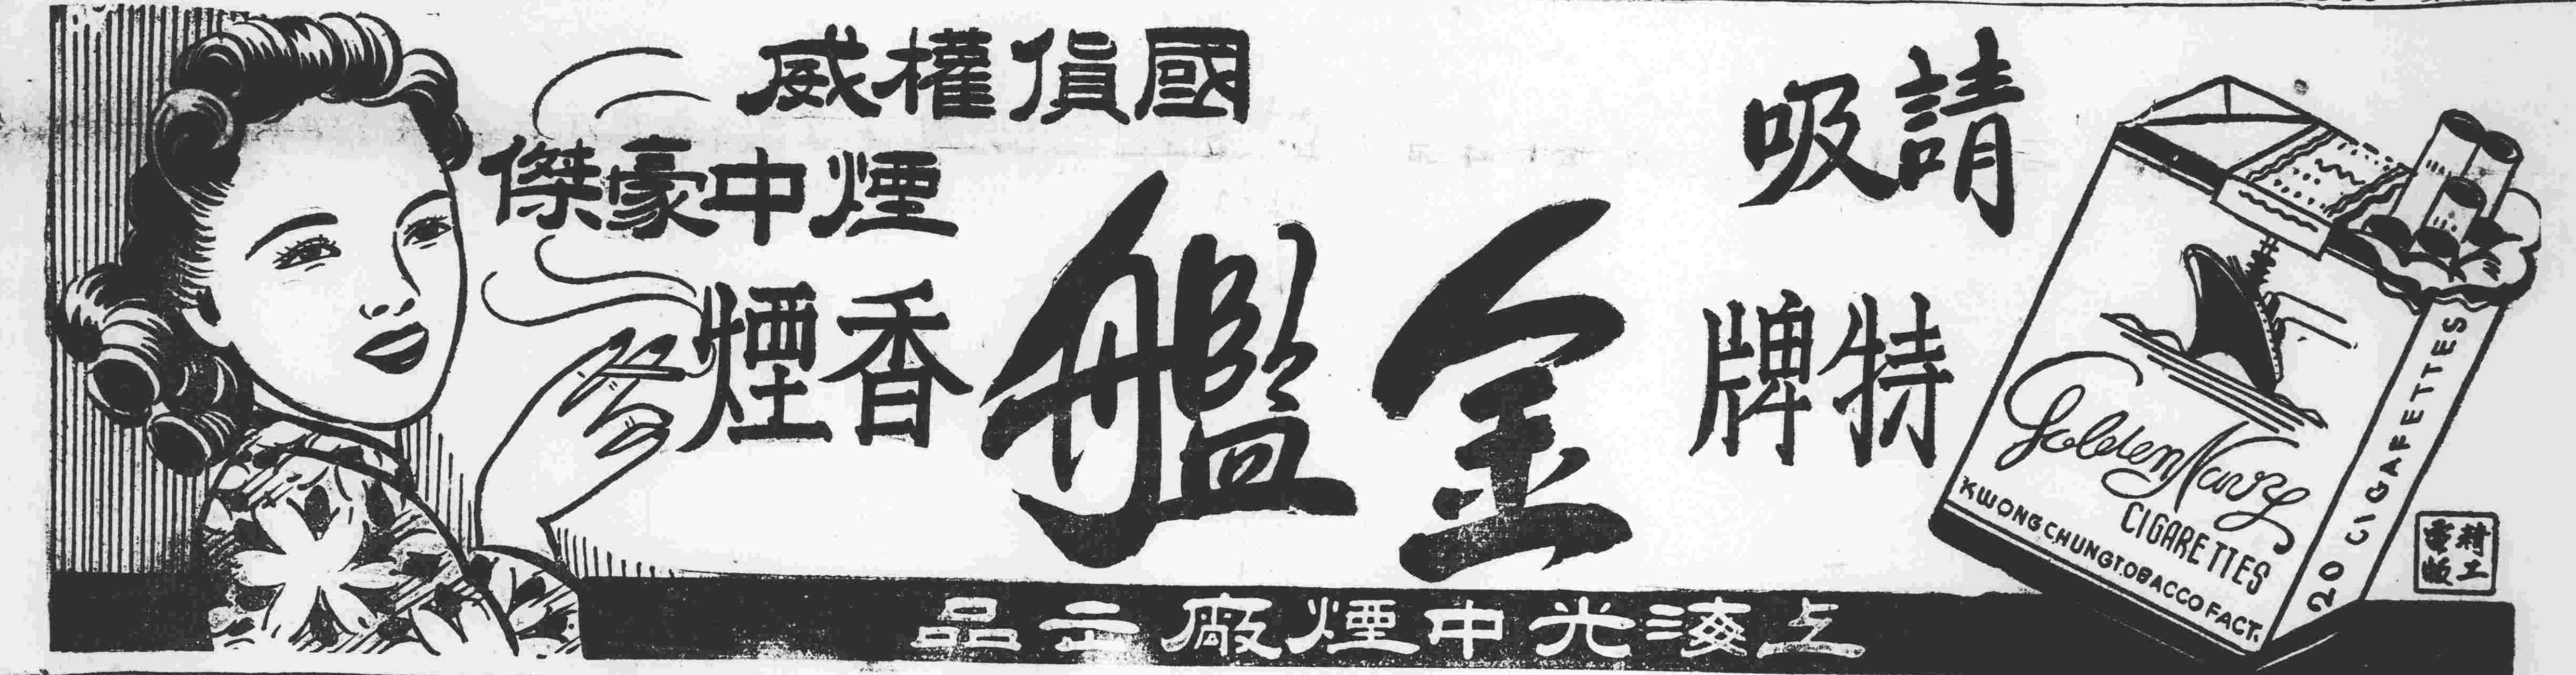 國貨權威
煙中豪傑
請吸
特牌
金艦
香煙
上海光中煙廠出品
Golden Navy
CIGARETTES
KWONG CHUNG TOBACCO FACT.
20 CIGARETTES